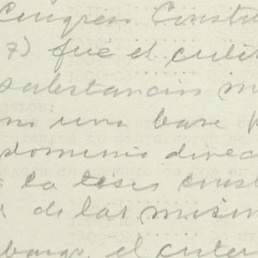 Congreso Constitu
7) fué el crite
substancias m
una base p
dominio direc
la tesis const
de las mism
bargo, el criter